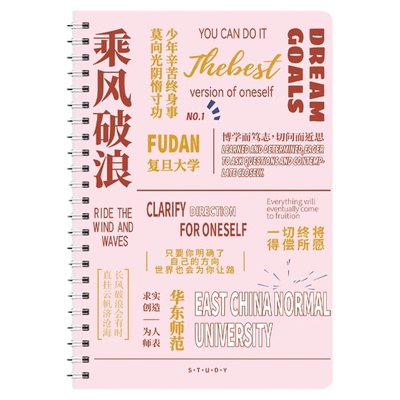 乘风破浪
少年辛苦终身事
莫向光阴惰寸功
YOU CAN DO IT
Thebest
version of oneself
NO.1
DREAM
GOALS
FUDAN
复旦大学
博学而笃志·切问而近思
LEARNED AND DETERMINED, EAGER
TO ASK QUESTIONS AND CONTEMP-
LATE CLOSELY.
RIDE THE
WIND AND
WAVES
CLARIFY DIRECTION
FOR ONESELF
Everything will
eventually come
to fruition
一切终将
得偿所愿
只要你明确了
自己的方向
世界也会为你让路
长风破浪会有时
直挂云帆济沧海
求实
创造
为人
师表
华东师范
EAST CHINA NORMAL
UNIVERSITY
STUDY